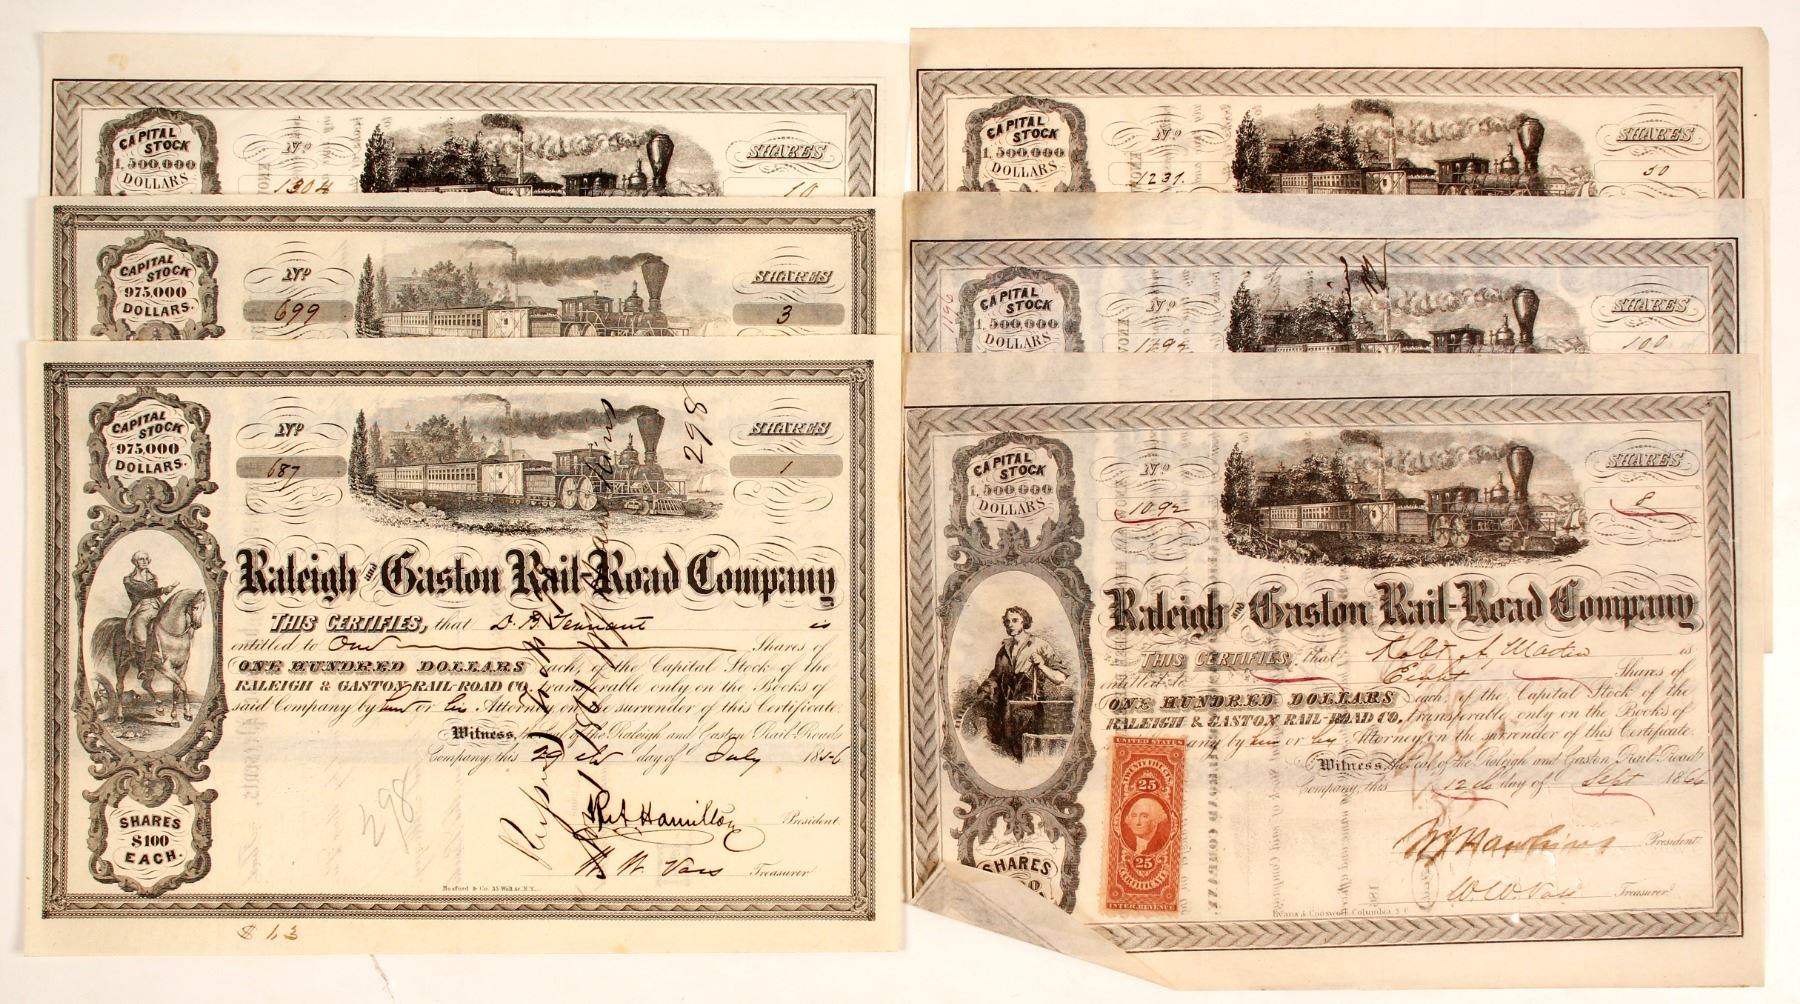 CAPITAL
STOCK
1,500,000
DOLLARS
No
1304
SHARES
10
CAPITAL
STOCK
975,000
DOLLARS.
No
699
SHARES
3
CAPITAL
STOCK
975,000
DOLLARS.
No
687
SHARES
1
298
Raleigh and Gaston Rail-Road Company
THIS CERTIFIES, that D. B. Tennant is
entitled to One Shares of
ONE HUNDRED DOLLARS each, of the Capital Stock of the
RALEIGH & GASTON RAIL-ROAD CO. transferable only on the Books of
said Company by or his Attorney on the surrender of this Certificate.
Witness, of the Raleigh and Gaston Rail-Road
Company, this 29 day of July 1856
298
SHARES
$100
EACH.
Hamilton President
W. W. Vass Treasurer
$ 1,3
CAPITAL
STOCK
1,500,000
DOLLARS
No
1231.
SHARES
50
1196
CAPITAL
STOCK
1,500,000
DOLLARS
No
1294
SHARES
100
CAPITAL
STOCK
1,500,000
DOLLARS
No
1092
SHARES
8
Raleigh and Gaston Rail-Road Company
THIS CERTIFIES, that Robt A, is
entitled to Eight Shares of
ONE HUNDRED DOLLARS each, of the Capital Stock of the
RALEIGH & GASTON RAIL-ROAD CO, transferable only on the Books of
any by or Attorney on the surrender of this Certificate.
Witness, the Seal of the Raleigh and Gaston Rail-Road
Company, this 12th day of Sept 1866
UNITED STATES
TWENTY FIVE CENTS
25
25
CERTIFICATE
INTER. REVENUE
SHARES
Hawkins President
W. W. Vass Treasurer
Evans & Cogswell, Columbia, S. C.